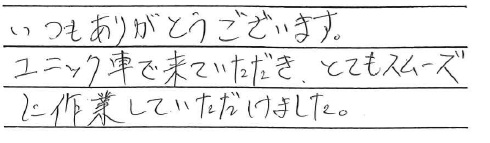 いつもありがとうございます。
ユニック車で来ていただき、とてもスムーズ
に作業していただけました。